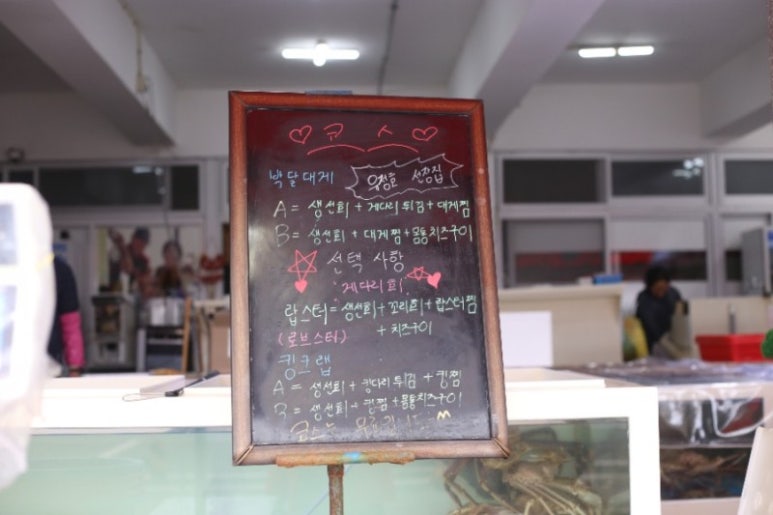 ♡ 코 스 ♡
박달대게 선장집
A = 생선회 + 게다리튀김 + 대게찜
B = 생선회 + 대게찜 + 몸통치즈구이
선택 사항
게다리회
랍스터 = 생선회 + 꼬리회 + 랍스터찜
+ 치즈구이
(로브스터)
킹크랩
A = 생선회 + 킹다리튀김 + 킹찜
B = 생선회 + 킹찜 + 몸통치즈구이